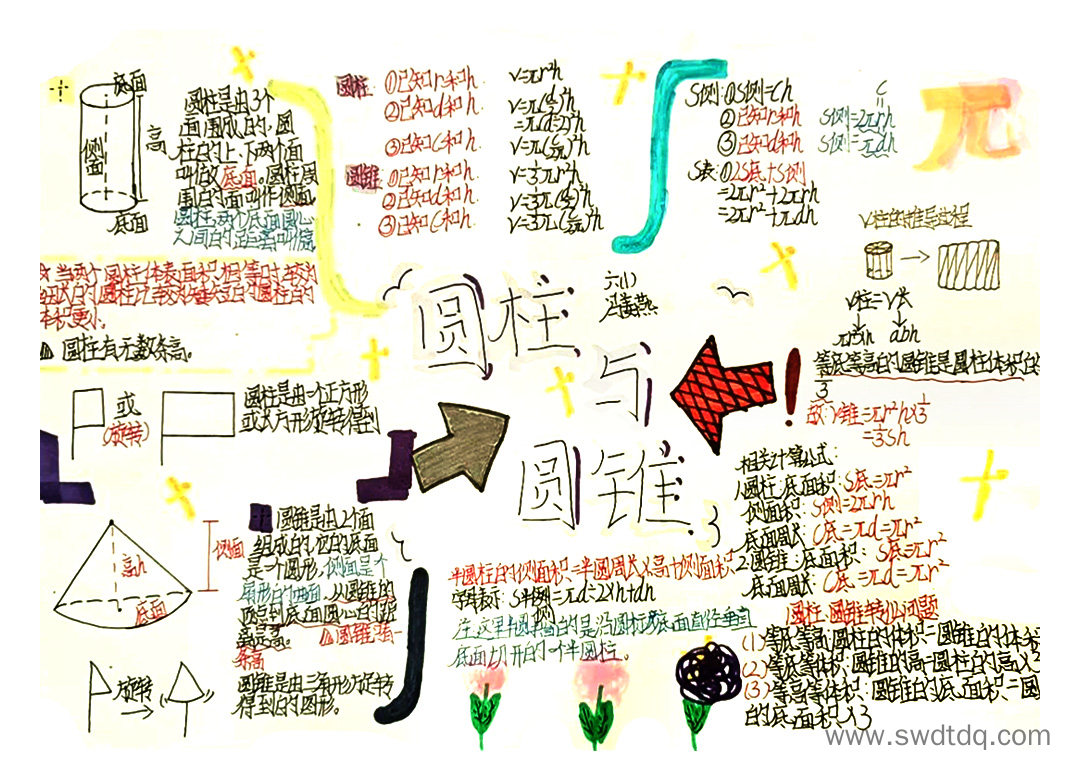 底面
侧面
高
底面
圆柱是由3个
面围成的,圆
柱的上、下两个面
叫做底面。圆柱周
围的面叫作侧面,
圆柱两个底面圆心
之间的距离叫做高
当两个圆柱体表面积相等时,较为
细长的圆柱比较为矮短的圆柱的
体积更小。
圆柱有无数条高。
或
(旋转)
圆柱是由一个正方形
或长方形旋转得到
圆柱
①已知r和h.
v=πr²h
②已知d和h.
v=π(d/2)²h
=π(d÷2)²h
③已知c和h.
v=π(c/2π)²h
圆锥
①已知r和h.
v=1/3πr²h
②已知d和h.
v=1/3π(d/2)²h
③已知c和h.
v=1/3π(c/2π)²h
S侧:①S侧=Ch
②已知r和h S侧=2πrh
③已知d和h S侧=πdh
S表:①2S底+S侧
=2πr²+2πrh
=2πr²+πdh
C
=
π
V柱的推导过程
V柱=V长
πr²h abh
等底等高的圆锥是圆柱体积的
1/3
故:V锥=πr²h×1/3
=1/3sh
六(1)
圆柱
与
圆锥
相关计算公式:
1.圆柱:底面积:S底=πr²
侧面积:S侧=2πrh
底面周长:C底=πd=πr²
2.圆锥:底面积:S底=πr²
底面周长:C底=πd=πr²
圆柱、圆锥转化问题
(1)等底等高:圆柱的体积=圆锥的体积
(2)等底等体积:圆锥的高=圆柱的高×3
(3)等高等体积:圆锥的底面积=圆
的底面积×3
高h
底面
侧面
圆锥是由2个面
组成的,它的底面
是一个圆形,侧面是个
扇形的曲面,从圆锥的
顶点到底面圆心的距
离是高。圆锥只有一
条高
旋转
圆锥是由三角形旋转
得到的图形。
半圆柱的侧面积=半圆周长×高+侧面积
字母表示:S半侧=πd÷2×h+dh
注:这里半圆柱指的是沿圆柱底面直径垂直
底面切开的一个半圆柱。
www.swdtdq.com